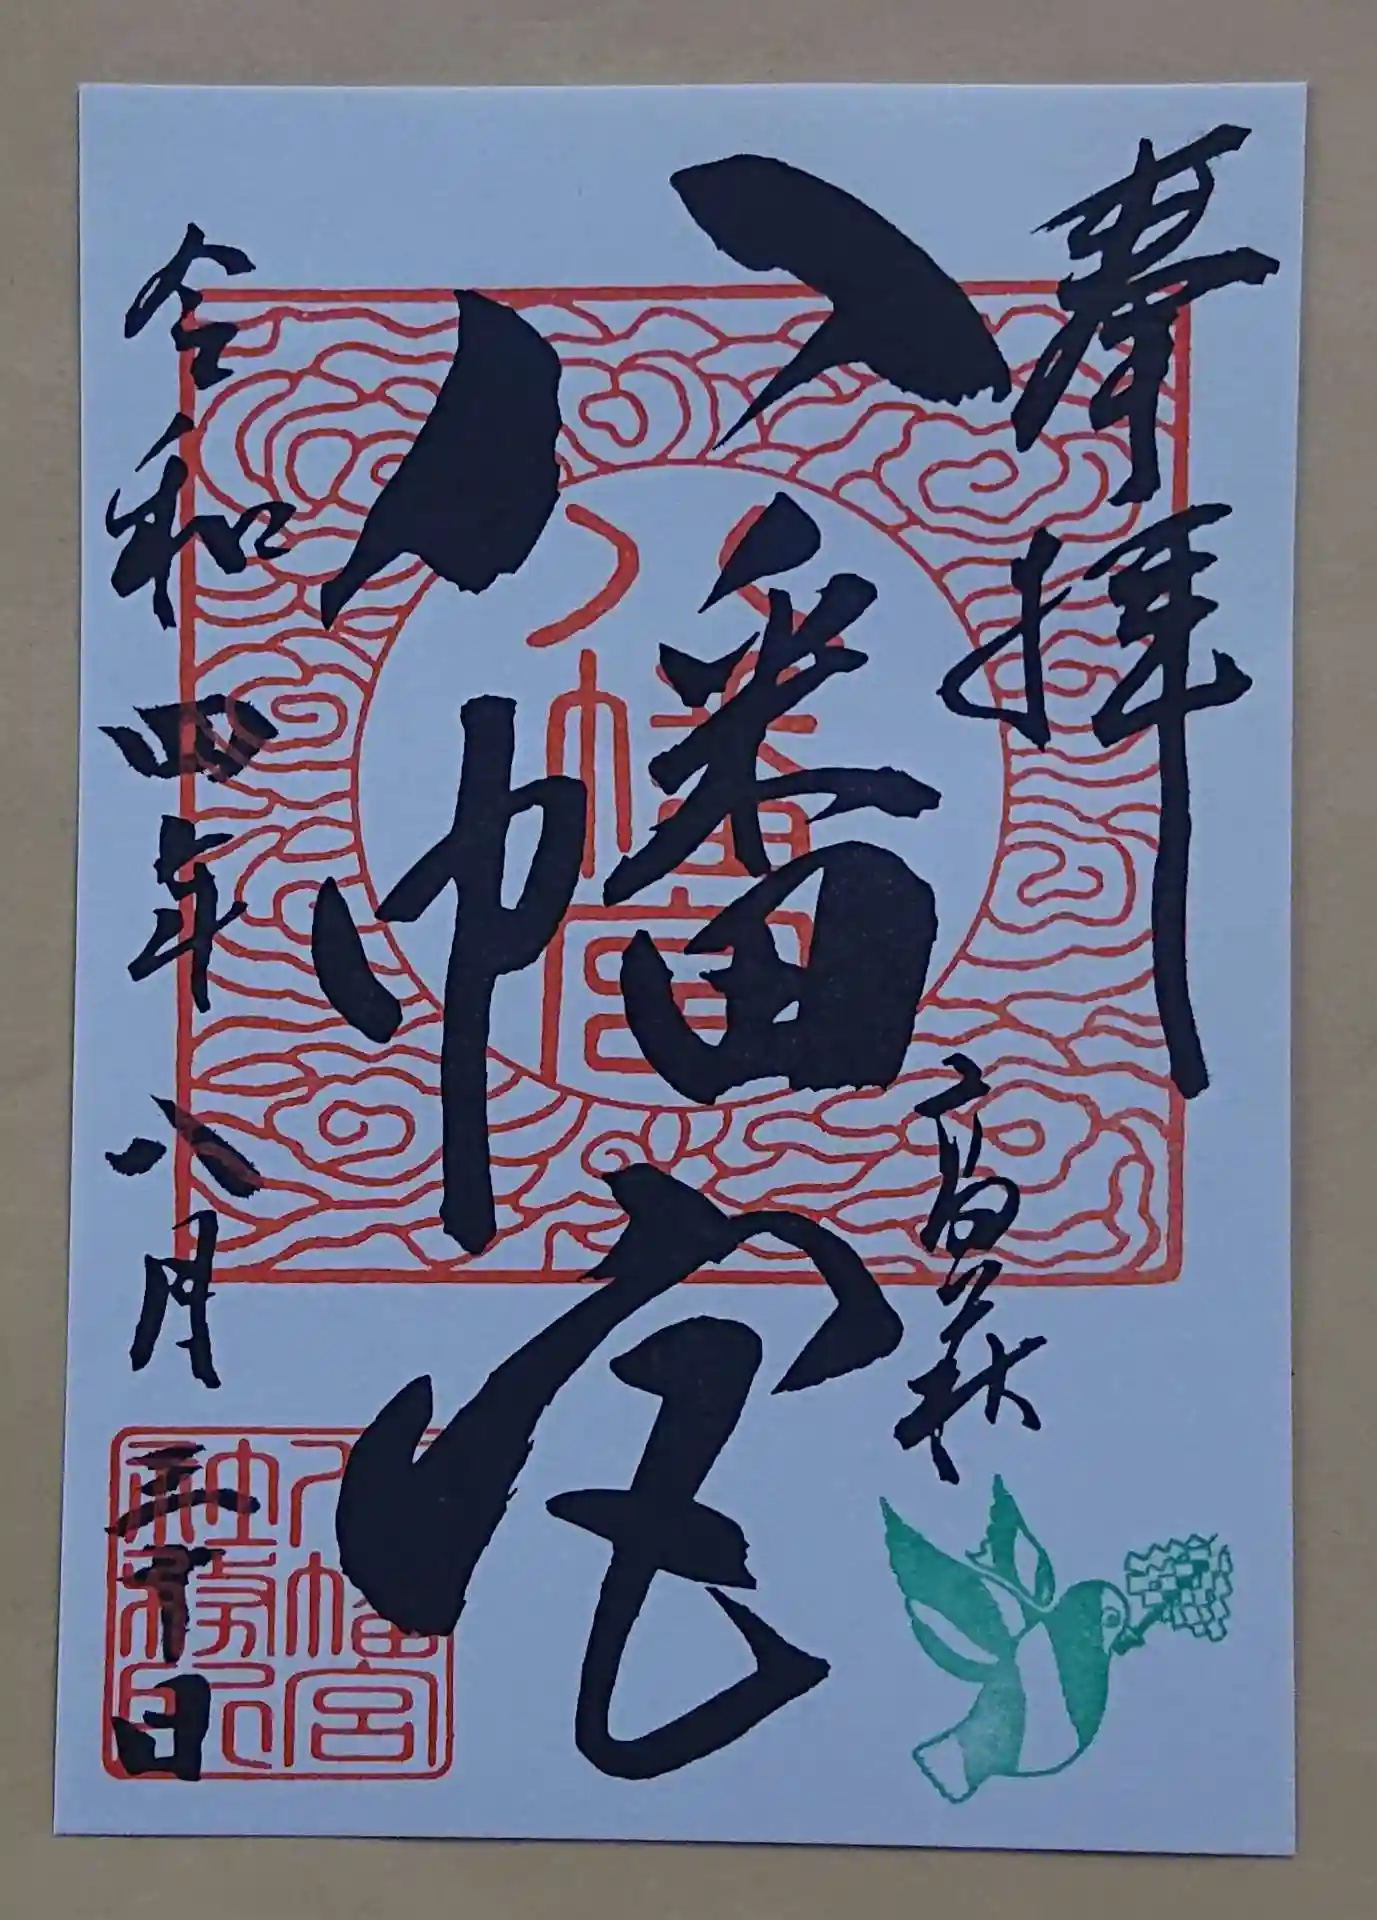 奉拝
高萩
八幡宮
八幡宮
令和四年八月三十日
八幡宮
社務印